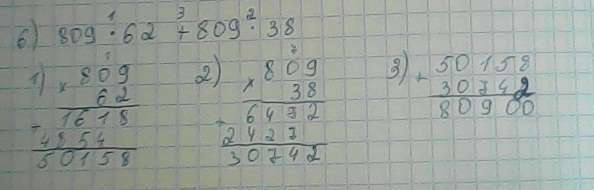 1 3 2
б) 809 · 62 + 809 · 38
1) × 809
62
1618
+ 4854
50158
2) × 809
38
6472
+ 2427
30742
3) + 50158
30742
80900